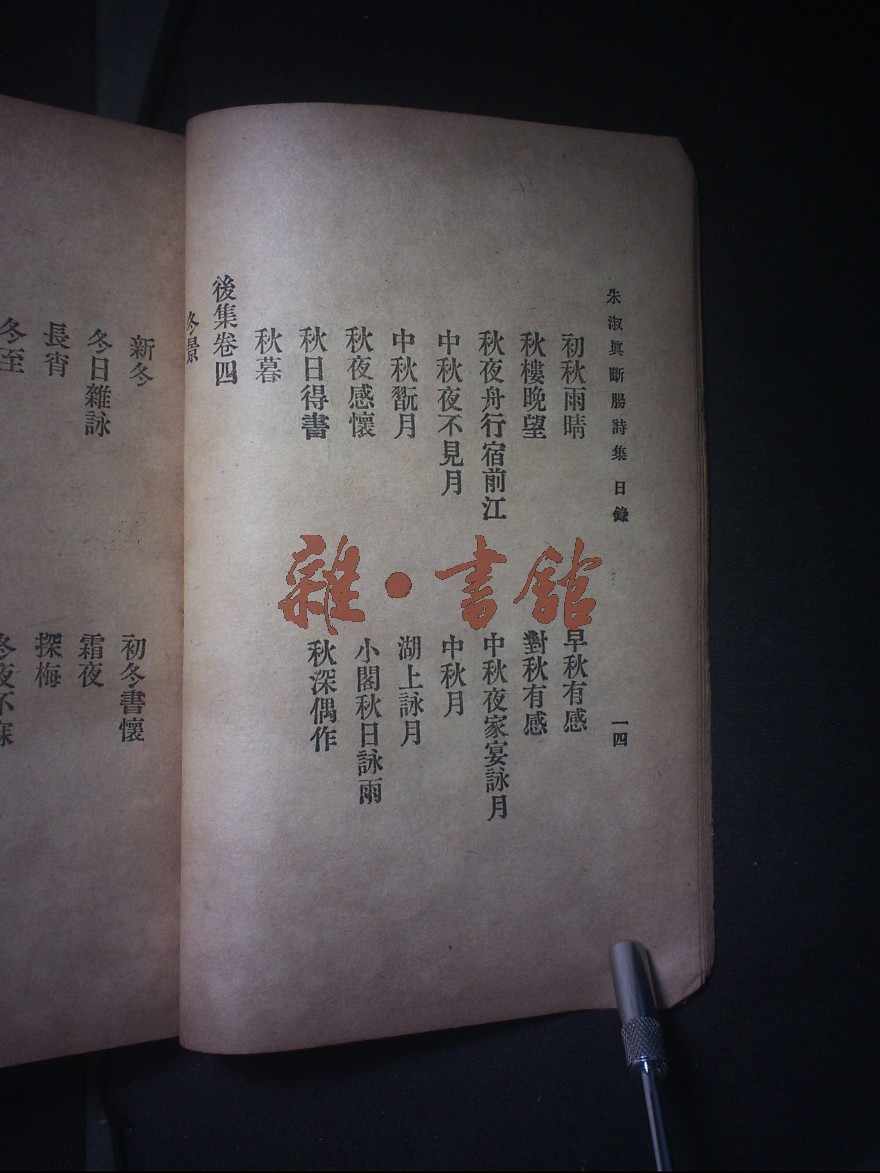 朱淑眞斷腸詩集 目錄
一四
初秋雨晴
早秋有感
秋樓晚望
對秋有感
秋夜舟行宿前江
中秋夜家宴詠月
中秋夜不見月
中秋月
中秋翫月
湖上詠月
秋夜感懷
小閣秋日詠雨
秋日得書
秋深偶作
秋暮
後集卷四
冬景
新冬
初冬書懷
冬日雜詠
霜夜
長宵
探梅
冬至
冬夜不寐
雜·書館